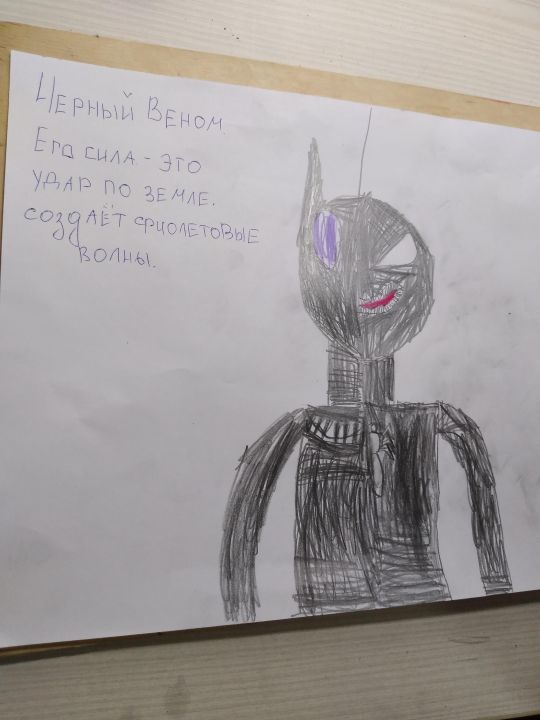 Черный Веном.
Его сила - это
удар по земле.
создаёт фиолетовые
волны.